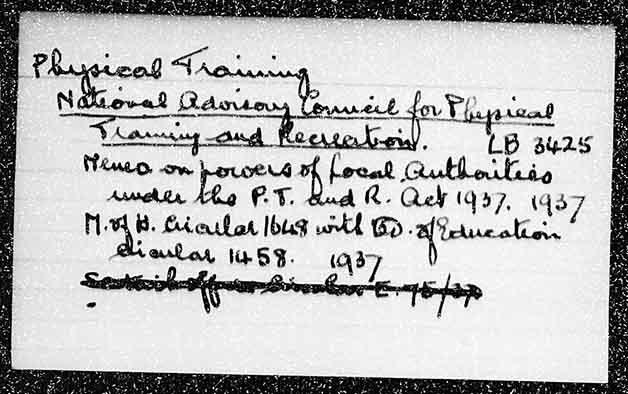 Physical Training
National Advisory Council for Physical
Training and Recreation. LB 3425
Memo on powers of Local Authorities
under the P.T. and R. Act 1937. 1937
M. of H. Circular 1648 with BD. of Education
circular 1458. 1937
Circular E. 75/37